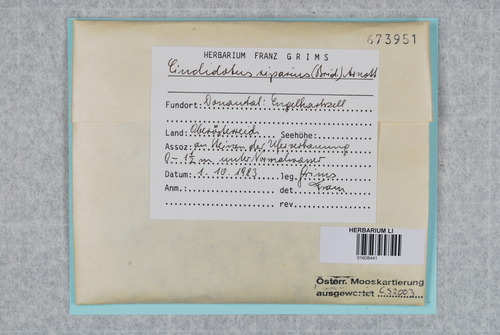 673951
HERBARIUM FRANZ GRIMS
Cinclidotus riparius (Brid.) Arnott
Fundort: Donautal: Engelhartszell
Land: Oberösterreich Seehöhe:
Assoz: an Steinen der Uferverbauung
0 - 1½ m unter Normalwasser
Datum: 1. 10. 1983 leg. Grims
Anm.: det. Franz
rev.
HERBARIUM LI
01608441
Österr. Mooskartierung
ausgewertet CS2003